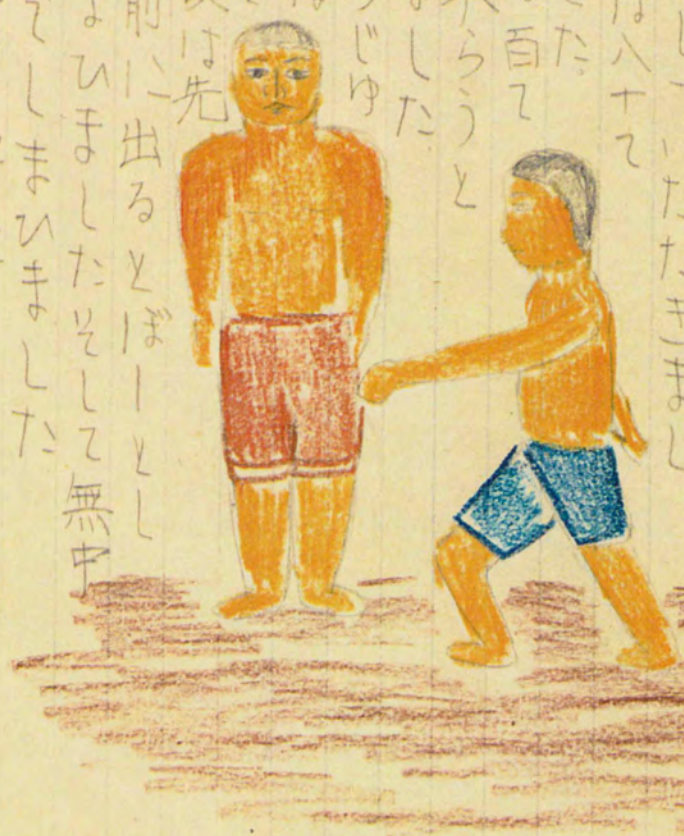 いたたきまし
は八十て
た
百て
らうと
ました
じゆ
は先
前に出るとぼーとし
ひましたそして無中
てしまひました